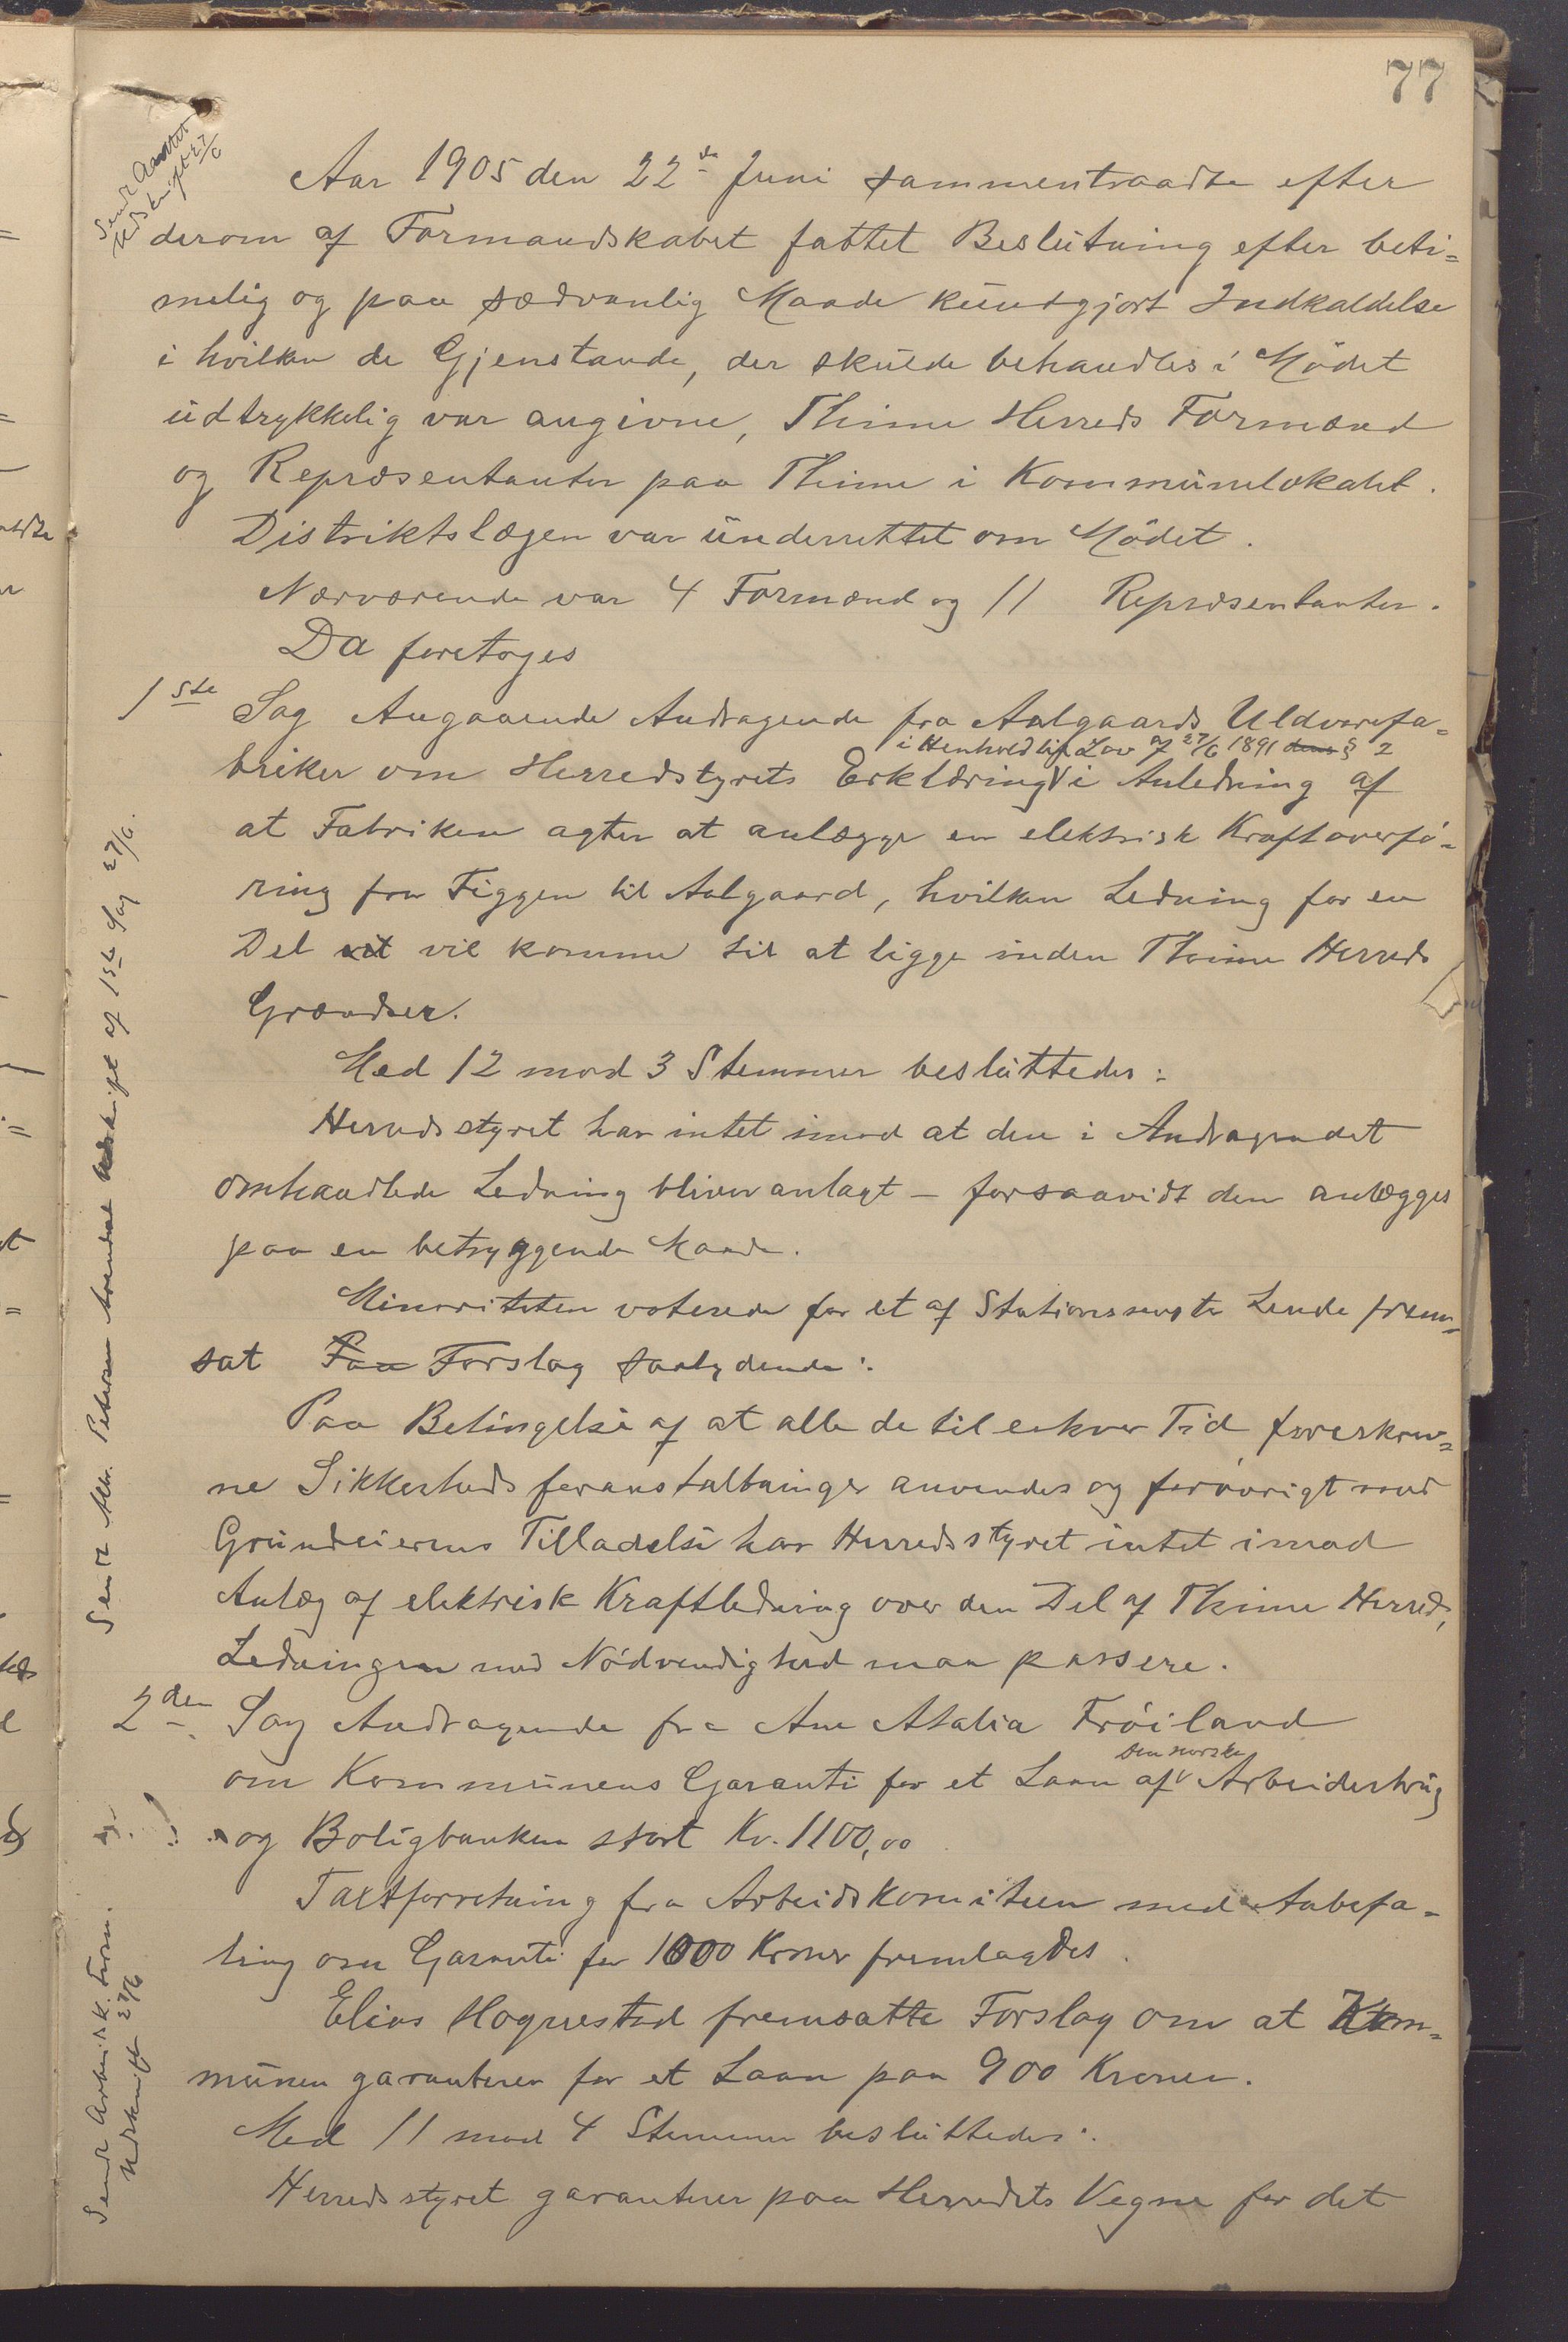 77
Sendt Amtet
Udskrift 27/6
Aar 1905 den 22de Juni sammentraadte efter
derom af Formandskabet fattet Beslutning efter beti=
melig og paa sædvanlig Maade kundgjort Indkaldelse
i hvilken de Gjenstande, der skulde behandles i Mödet
udtrykkelig var angivne, Thime Herreds Formænd
og Repræsentanter paa Thime i Kommunelokalet.
Distriktslægen var underrettet om Mödet.
Nærværende var 4 Formænd og 11 Repræsentanter.
Da foretoges
1ste Sag Angaaende Andragende fra Aalgaards Uldvarefa=
i Henhold til Lov af 27/6 1891 dens § 2
briker om Herredstyrets Erklæring i Anledning af
at Fabriken agter at anlægge en elektrisk Kraftoverfö=
ring fra Figgen til Aalgaard, hvilken Ledning for en
Del vil komme til at ligge inden Thime Herreds
Grændser.
Med 12 mod 3 Stemmer besluttedes:
Herredsstyret har intet imod at den i Andragendet
omhandlede Ledning bliver anlagt – forsaavidt den anlægges
paa en betryggende Maade.
Minoriteten voterede for et af Stationsmester Lende frem=
sat Paa Forslag saalydende:
Paa Betingelse af at alle de til enhver Tid foreskrev=
ne Sikkerhedsforanstaltninger anvendes og forövrigt med
Grundeierens Tilladelse har Herredsstyret intet imod
Anlæg af elektrisk Kraftledning over den Del af Thime Herred,
Ledningen med Nödvendighed maa passere.
Sendt Alb. Petersen Udskrift af 1ste Sag 27/6.
2den Sag Andragende fra Ane Atalia Fröiland
den norske
om Kommunens Garanti for et Laan af Arbeiderbrug
og Boligbanken stort Kr. 1100,00
Taxtforretning fra Arbeidskomiteen med Anbefa=
ling om Garanti for 1000 Kroner fremlagdes.
Elias Hognestad fremsatte Forslag om at Kom=
munen garanterer for et Laan paa 900 Kroner.
Med 11 mod 4 Stemmer besluttedes:
Herredsstyret garanterer paa Herredets Vegne for det
Sendt Arbeidsk. Form.
Udskrift 27/6